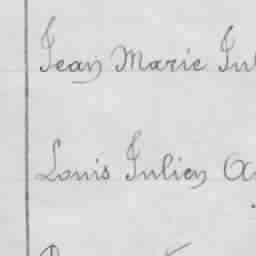 Jean Marie Jul
Louis Julien